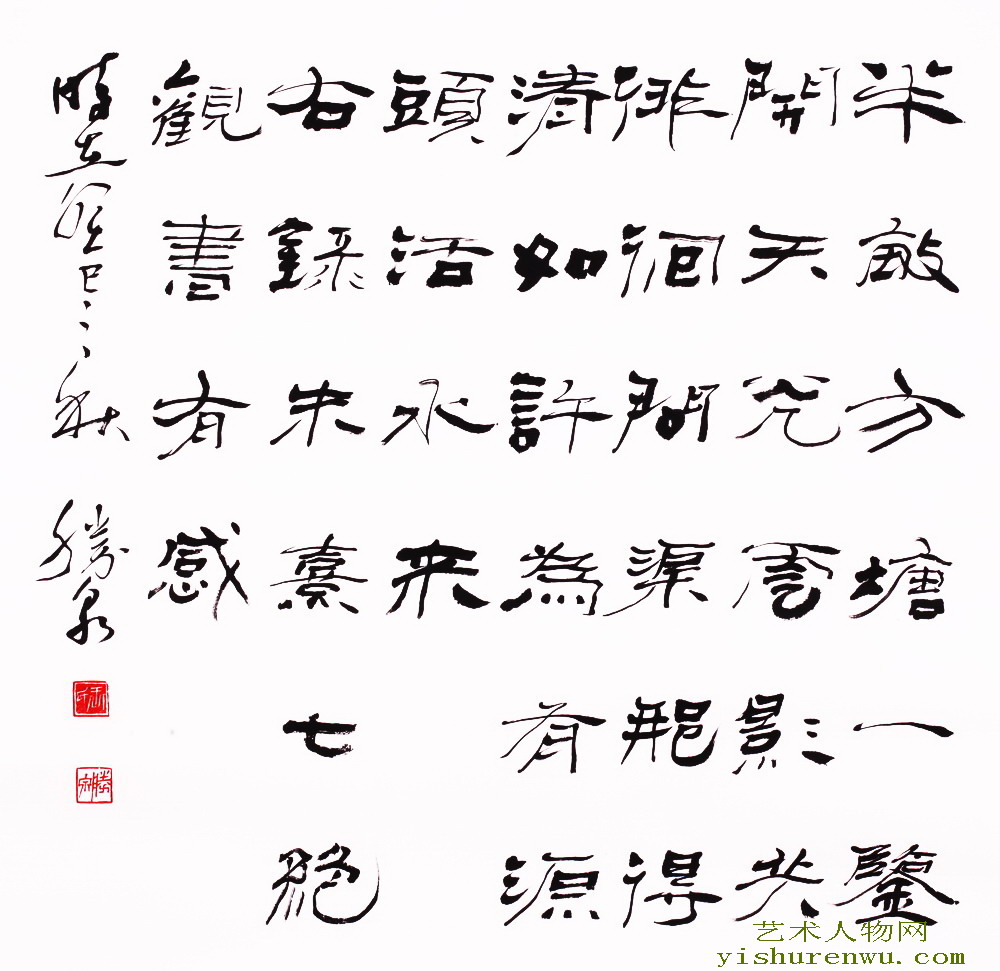 半畝方塘一鑒
開天光雲影共
徘徊問渠那得
清如許為有源
頭活水來
右錄朱熹七絕
觀書有感
時在癸巳之秋 勝泉
艺术人物网
yishurenwu.com